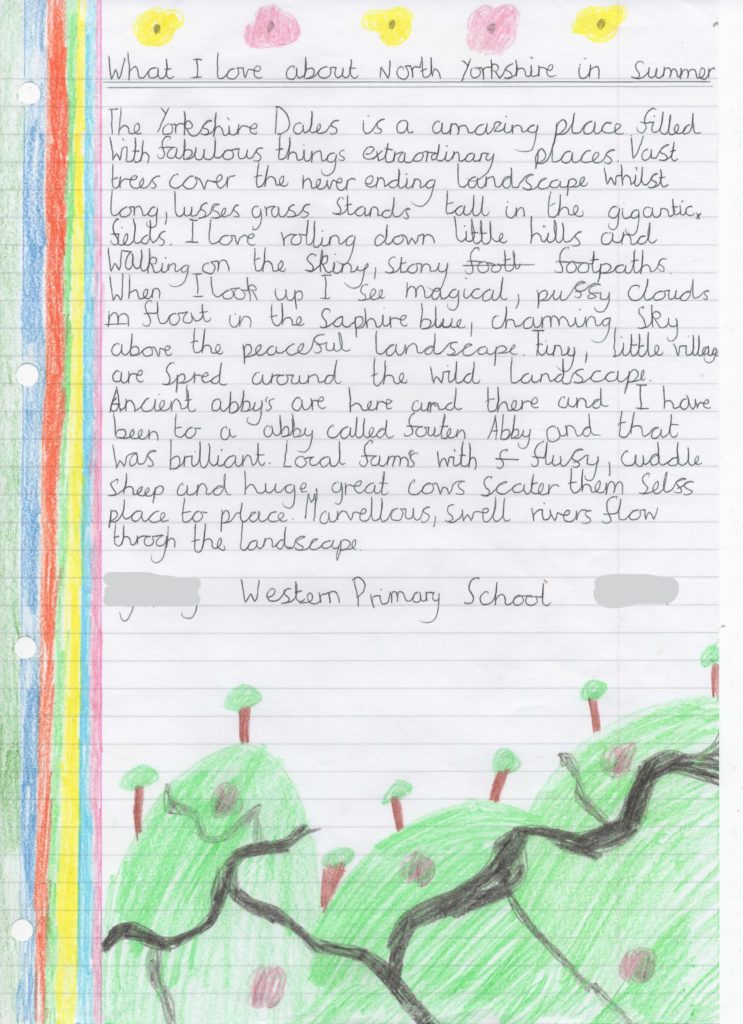 What I love about North Yorkshire in Summer
The Yorkshire Dales is a amazing place filled
with fabulous things extraordinary places. Vast
trees cover the never ending landscape whilst
long, lusses grass stands tall in the gigantic,
felds. I love rolling down little hills and
walking on the skiny, stony footl footpaths.
When I look up I see magical, pussy clouds
m float in the saphire blue, charming, sky
above the peaceful landscape. Tiny, little village
are spred around the wild landscape.
Ancient abby's are here and there and I have
been to a abby called fouten Abby and that
was brilliant. Local farms with f flufy, cuddle
sheep and huge, great cows scater them selss
place to place. Marvellous, swell rivers flow
throgh the landscape.
Western Primary School